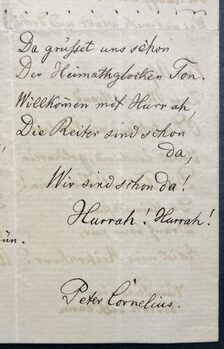 Da grüsset uns schon
Der Heimathglocken Ton.
Willkom̅en mit Hurrah,
Die Reiter sind schon
da,
Wir sind schon da!
Hurrah! Hurrah!
ün.
Peter Cornelius.